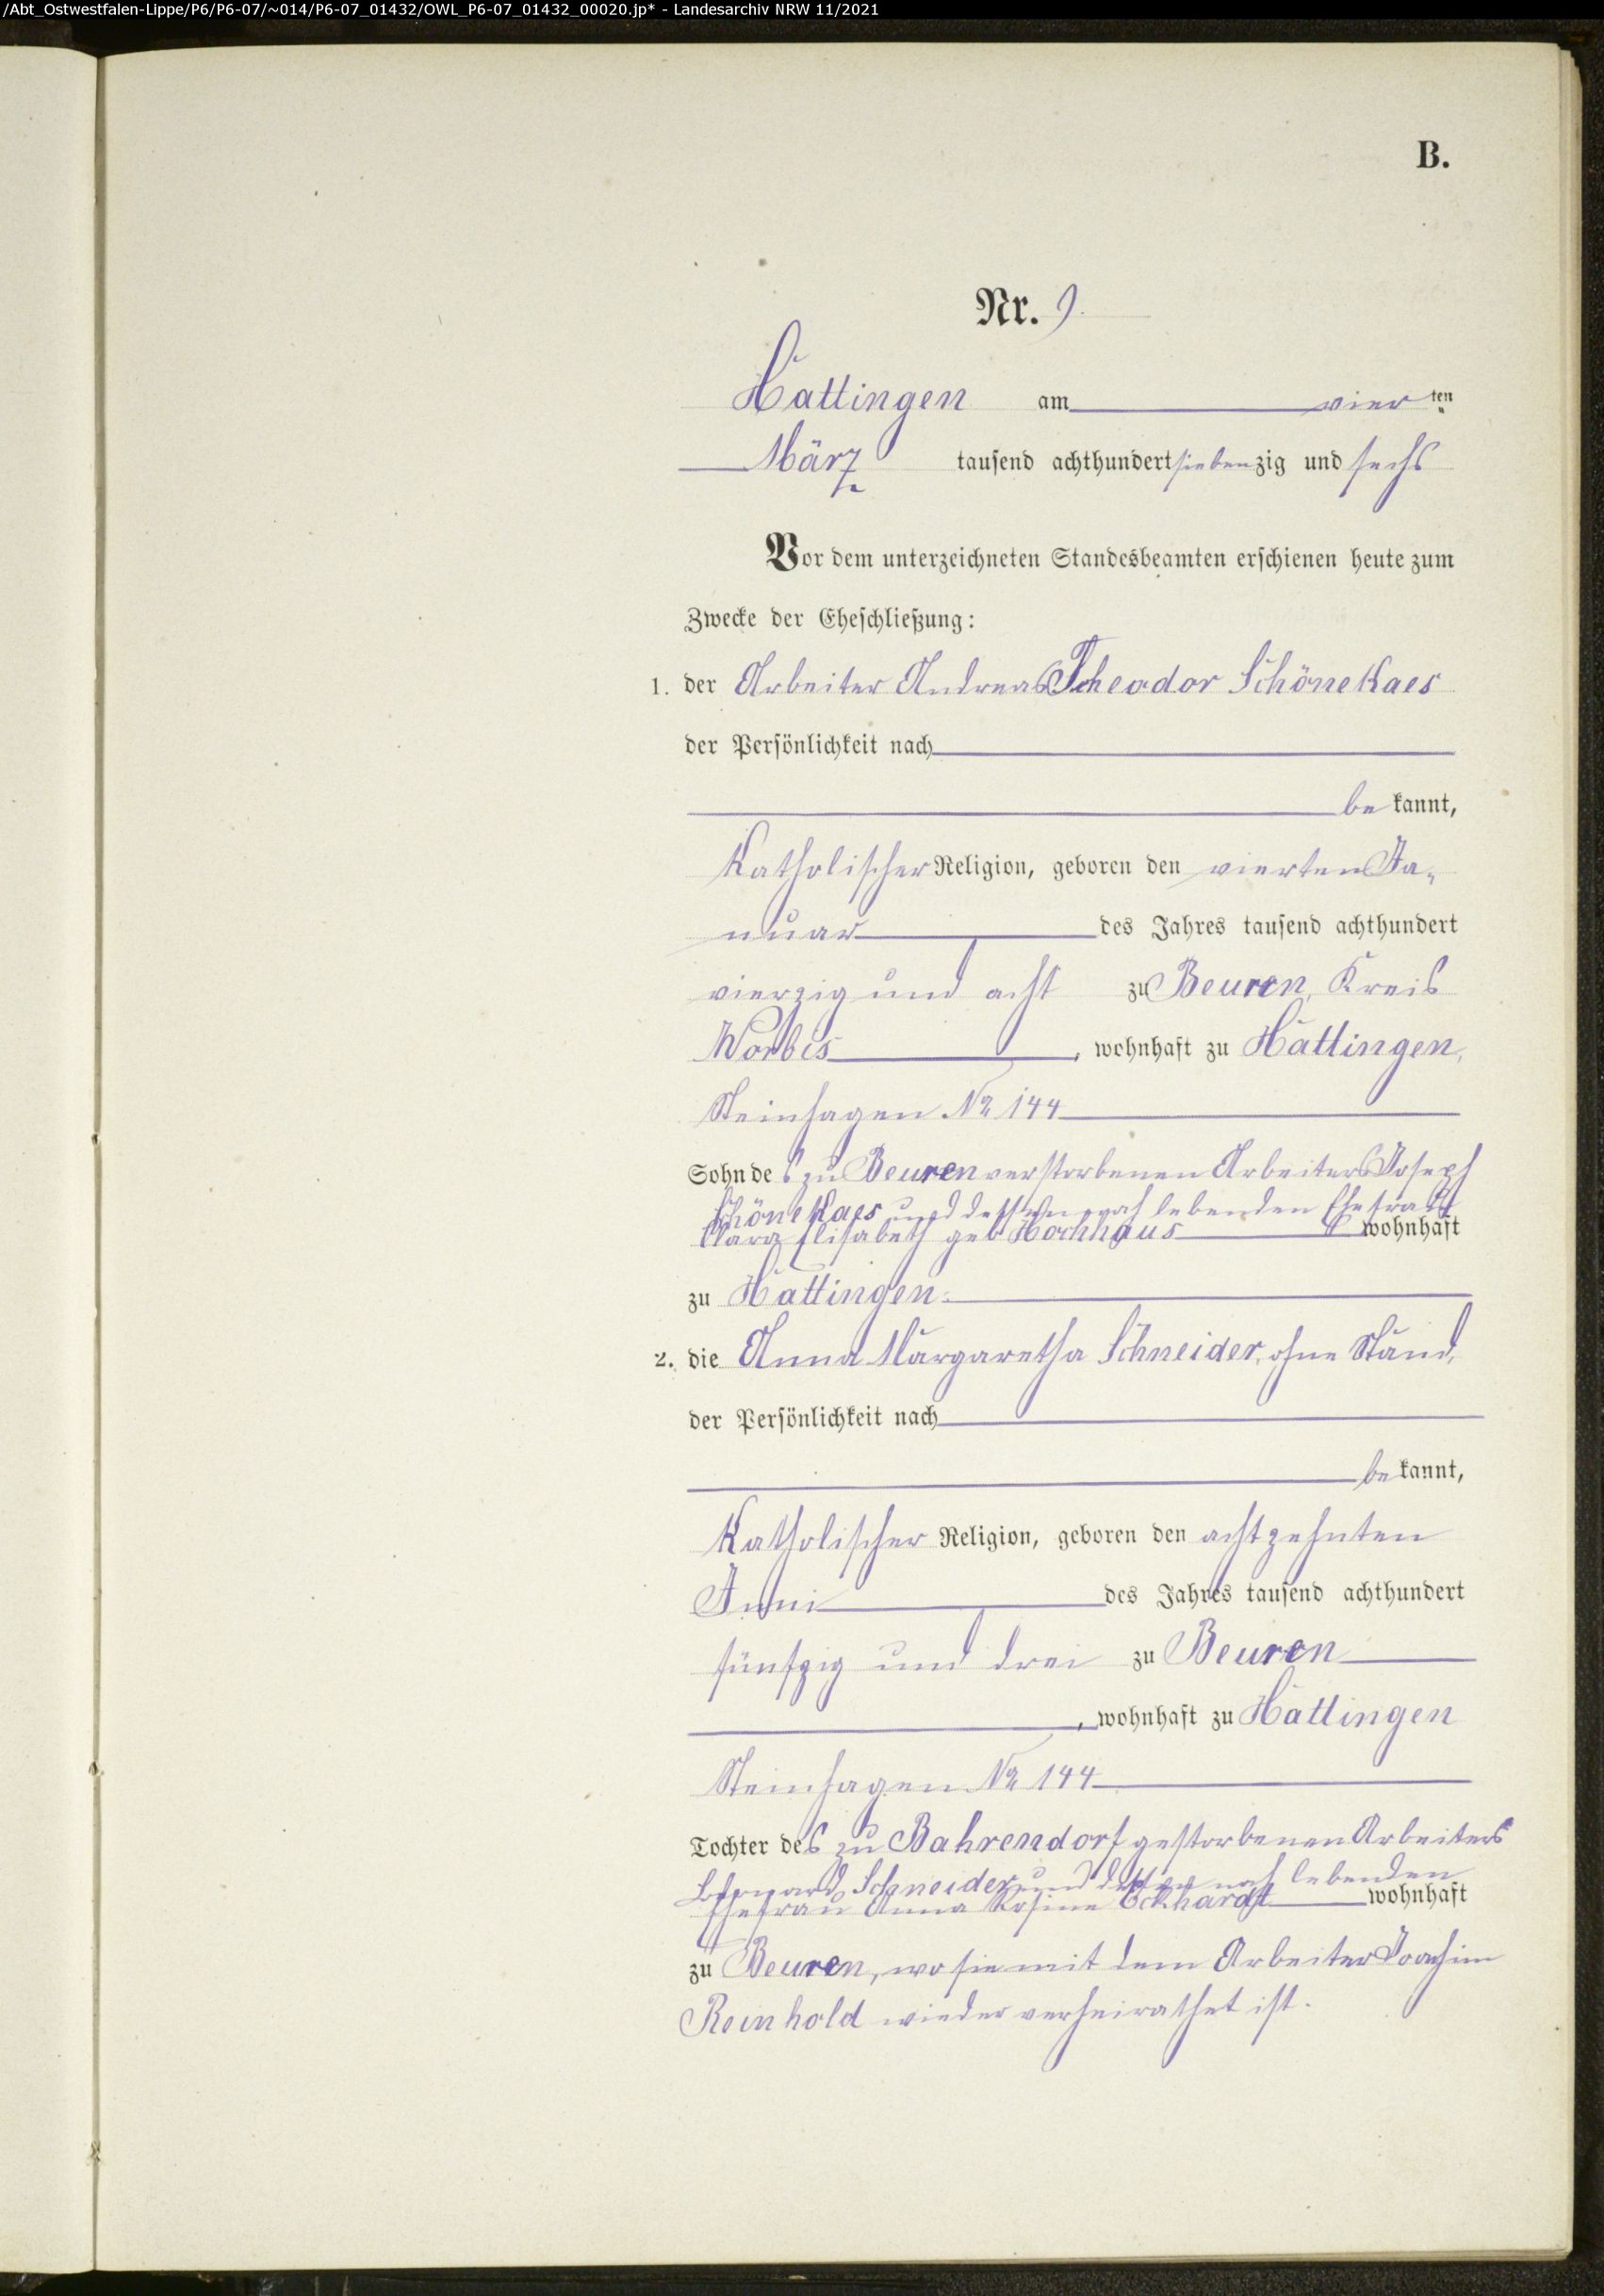 /Abt_Ostwestfalen-Lippe/P6/P6-07/~014/P6-07_01432/OWL_P6-07_01432_00020.jp* - Landesarchiv NRW 11/2021
B.
Nr. 9.
Hattingen am vierten
März tausend achthundert siebenzig und sechs
Vor dem unterzeichneten Standesbeamten erschienen heute zum
Zwecke der Eheschließung:
1. der Arbeiter Andreas Theodor Schönekaes
der Persönlichkeit nach
bekannt,
Katholischer Religion, geboren den vierten Ja-
nuar des Jahres tausend achthundert
vierzig und acht zu Beuren, Kreis
Worbis, wohnhaft zu Hattingen,
Steinhagen No 144
Sohn des zu Beuren verstorbenen Arbeiters Joseph
Schönekaes und dessen noch lebenden Ehefrau
Clara Elisabeth geb Hochhaus wohnhaft
zu Hattingen.
2. die Anna Margaretha Schneider, ohne Stand,
der Persönlichkeit nach
bekannt,
Katholischer Religion, geboren den achtzehnten
Juni des Jahres tausend achthundert
fünfzig und drei zu Beuren
, wohnhaft zu Hattingen
Steinhagen No 144
Tochter des zu Bahrendorf gestorbenen Arbeiters
Bernard Schneider und dessen noch lebenden
Ehefrau Anna Rosine Eckhardt wohnhaft
zu Beuren, wo sie mit dem Arbeiter Joachim
Reinhold wieder verheirathet ist.